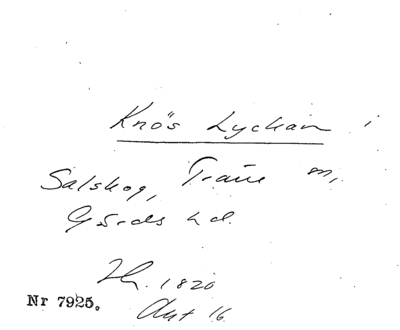 Knös Lyckan i
Salskog, Träne sn,
Gärds hd.
Lm. 1820
Akt 16
Nr 7925.